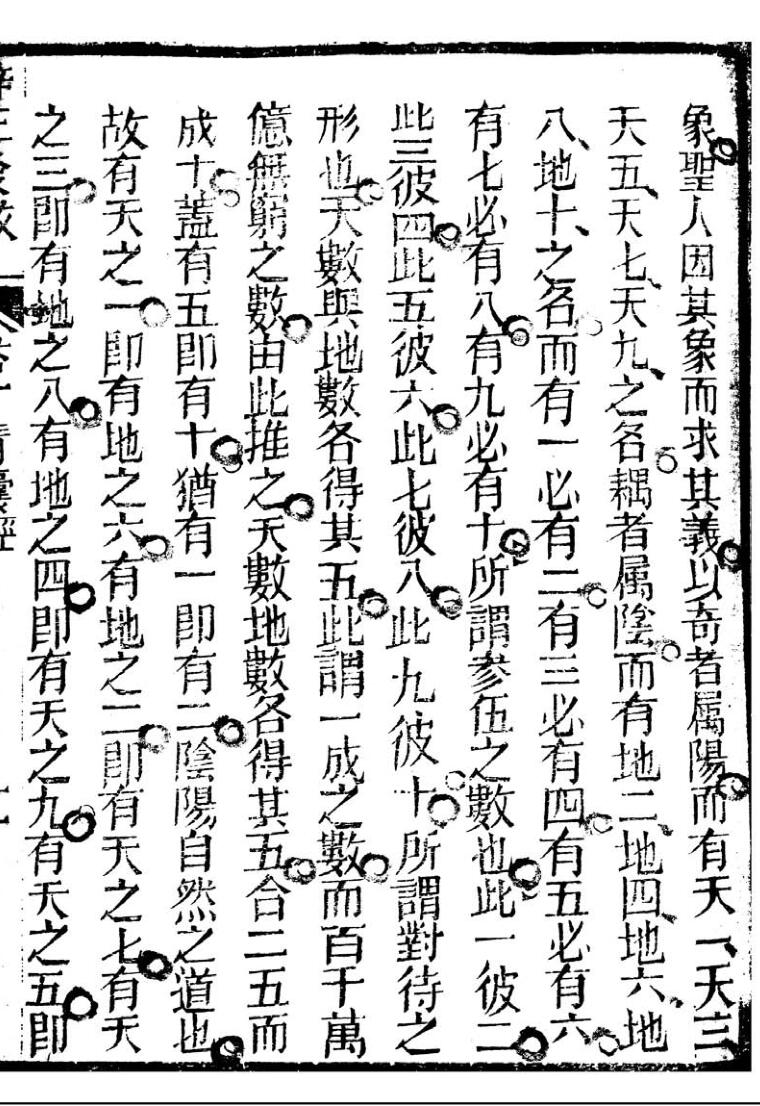 象聖人因其象而求其義以奇者属陽而有天一天三
天五天七天九之名耦者属陰而有地二地四地六地
八地十之名而有一必有二有三必有四有五必有六
有七必有八有九必有十所謂參伍之數也此一彼二
此三彼四此五彼六此七彼八此九彼十所謂對待之
形也天數與地數各得其五此謂一成之數而百千萬
億無窮之數由此推之天數地數各得其五合二五而
成十蓋有五即有十猶有一即有二陰陽自然之道也
故有天之一即有地之六有地之二即有天之七有天
之三即有地之八有地之四即有天之九有天之五即